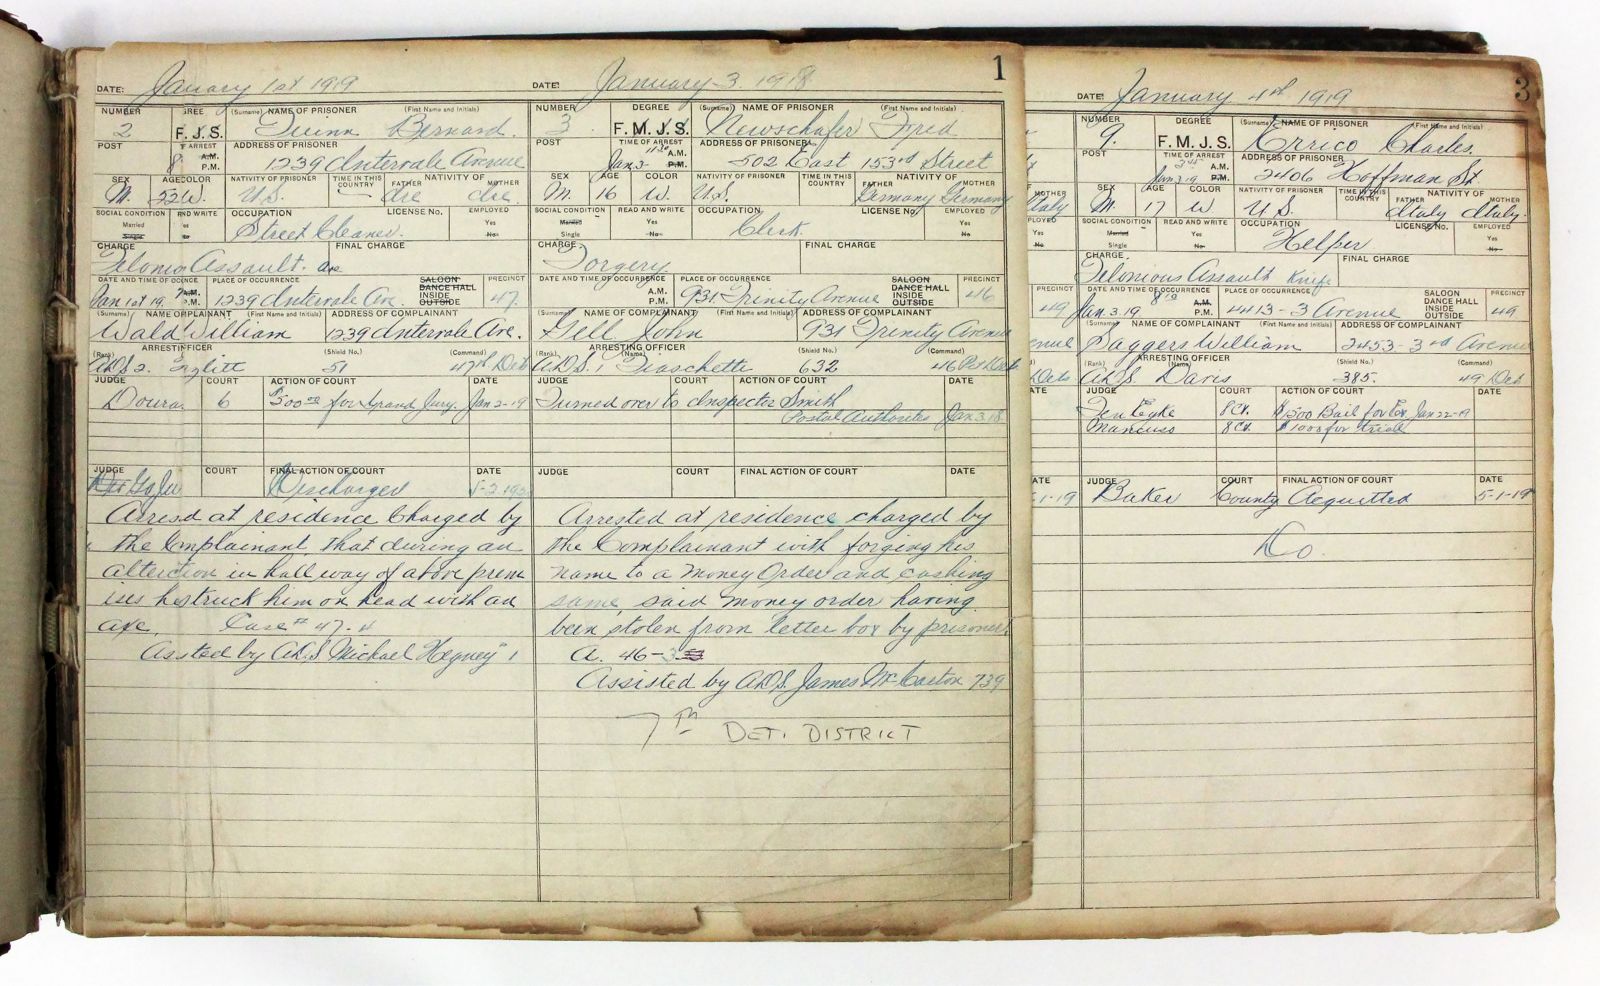 DATE: January 1st 1919
NUMBER GREE (Surname) NAME OF PRISONER (First Name and Initials)
2 F. J. S. Quinn Bernard.
POST F ARREST ADDRESS OF PRISONER
8 A.M. P.M. 1239 Intervale Avenue
SEX AGE COLOR NATIVITY OF PRISONER TIME IN THIS COUNTRY FATHER NATIVITY OF MOTHER
M. 52 W. U.S. - Ire Ire.
SOCIAL CONDITION AND WRITE OCCUPATION LICENSE No. EMPLOYED
Married Single Street Cleaner. Yes No
CHARGE FINAL CHARGE
Felonio Assault. axe
DATE AND TIME OF OC NCE PLACE OF OCCURRENCE SALOON DANCE HALL INSIDE OUTSIDE PRECINCT
Jan 1st 19. A.M. P.M. 1239 Intervale Ave. 47.
(Surname) NAME OF PLAINANT (First Name and Initials) ADDRESS OF COMPLAINANT
Wald William 1239 Intervale Ave.
(Rank) ARREST FFICER (Shield No.) (Command)
A.D.S. 2. 51 47th Det
JUDGE COURT ACTION OF COURT DATE
Douras 6 $500.00 for Grand Jury. Jan 2-19
JUDGE COURT FINAL ACTION OF COURT DATE
Discharged
Arresd at residence Charged by
the Complainant, that during an
altercation in hall way of above prem
ises he struck him on head with an
axe. Case # 47-4
Assted by A.D.S Michael Hegney 1
DATE: January 3 1918
1
NUMBER DEGREE (Surname) NAME OF PRISONER (First Name and Initials)
3 F. M. J. S. Newschafer Fred
POST TIME OF ARREST ADDRESS OF PRISONER
Jan 3- 11 30 A.M. P.M. 502 East 153rd Street
SEX AGE COLOR NATIVITY OF PRISONER TIME IN THIS COUNTRY FATHER NATIVITY OF MOTHER
M. 16 W. U.S. Germany Germany
SOCIAL CONDITION READ AND WRITE OCCUPATION LICENSE No. EMPLOYED
Married Single Yes No Clerk Yes No
CHARGE FINAL CHARGE
Forgery
DATE AND TIME OF OCCURRENCE PLACE OF OCCURRENCE SALOON DANCE HALL INSIDE OUTSIDE PRECINCT
A.M. P.M. 931 Trinity Avenue 46
(Surname) NAME OF COMPLAINANT (First Name and Initials) ADDRESS OF COMPLAINANT
Gell John 931 Trinity Avenue
(Rank) (Name) ARRESTING OFFICER (Shield No.) (Command)
A.D.S. 1 Fiaschetti 632 46 Pct Det
JUDGE COURT ACTION OF COURT DATE
Turned over to Inspector Smith
Postal Authorities Jan 3.18
JUDGE COURT FINAL ACTION OF COURT DATE
Arrested at residence, charged by
the Complainant with forging his
name to a Money Order and cashing
same, said money order having
been stolen from letter box by prisoner.
A. 46-3
Assisted by A.D.S. James McCarton 739
7th DET. DISTRICT
MOTHER
Italy
PLOYED
Yes
No
49
enue
Dets
ATE
-1-19
DATE: January 4th 1919
3
NUMBER DEGREE (Surname) NAME OF PRISONER (First Name and Initials)
9. F. M. J. S. Errico Charles.
POST TIME OF ARREST ADDRESS OF PRISONER
Jan 3 19 3 45 A.M. P.M. 2406 Hoffman St
SEX AGE COLOR NATIVITY OF PRISONER TIME IN THIS COUNTRY FATHER NATIVITY OF MOTHER
M. 17 W U.S. Italy Italy.
SOCIAL CONDITION READ AND WRITE OCCUPATION LICENSE No. EMPLOYED
Married Single Yes No Helper Yes No
CHARGE FINAL CHARGE
Felonious Assault Knife
DATE AND TIME OF OCCURRENCE PLACE OF OCCURRENCE SALOON DANCE HALL INSIDE OUTSIDE PRECINCT
Jan 3.19 A.M. P.M. 4413-3 Avenue 49
(Surname) NAME OF COMPLAINANT (First Name and Initials) ADDRESS OF COMPLAINANT
Daggers William 2453-3rd Avenue
(Rank) (Name) ARRESTING OFFICER (Shield No.) (Command)
A.D.S. Davis 385. 49 Det
JUDGE COURT ACTION OF COURT DATE
Ten Eyke 8 Ct. $1500 Bail for Ex Jan 22-19
Mancuso 8 Ct. $1000 for trial
JUDGE COURT FINAL ACTION OF COURT DATE
Baker County Acquitted 5-1-19
Do.